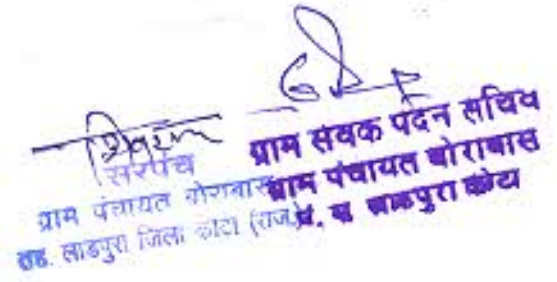 सरपंच
ग्राम पंचायत बोरावास
तह. लाडपुरा जिला कोटा (राज.)
ग्राम सेवक पदेन सचिव
ग्राम पंचायत बोरावास
पं. स लाडपुरा कोटा